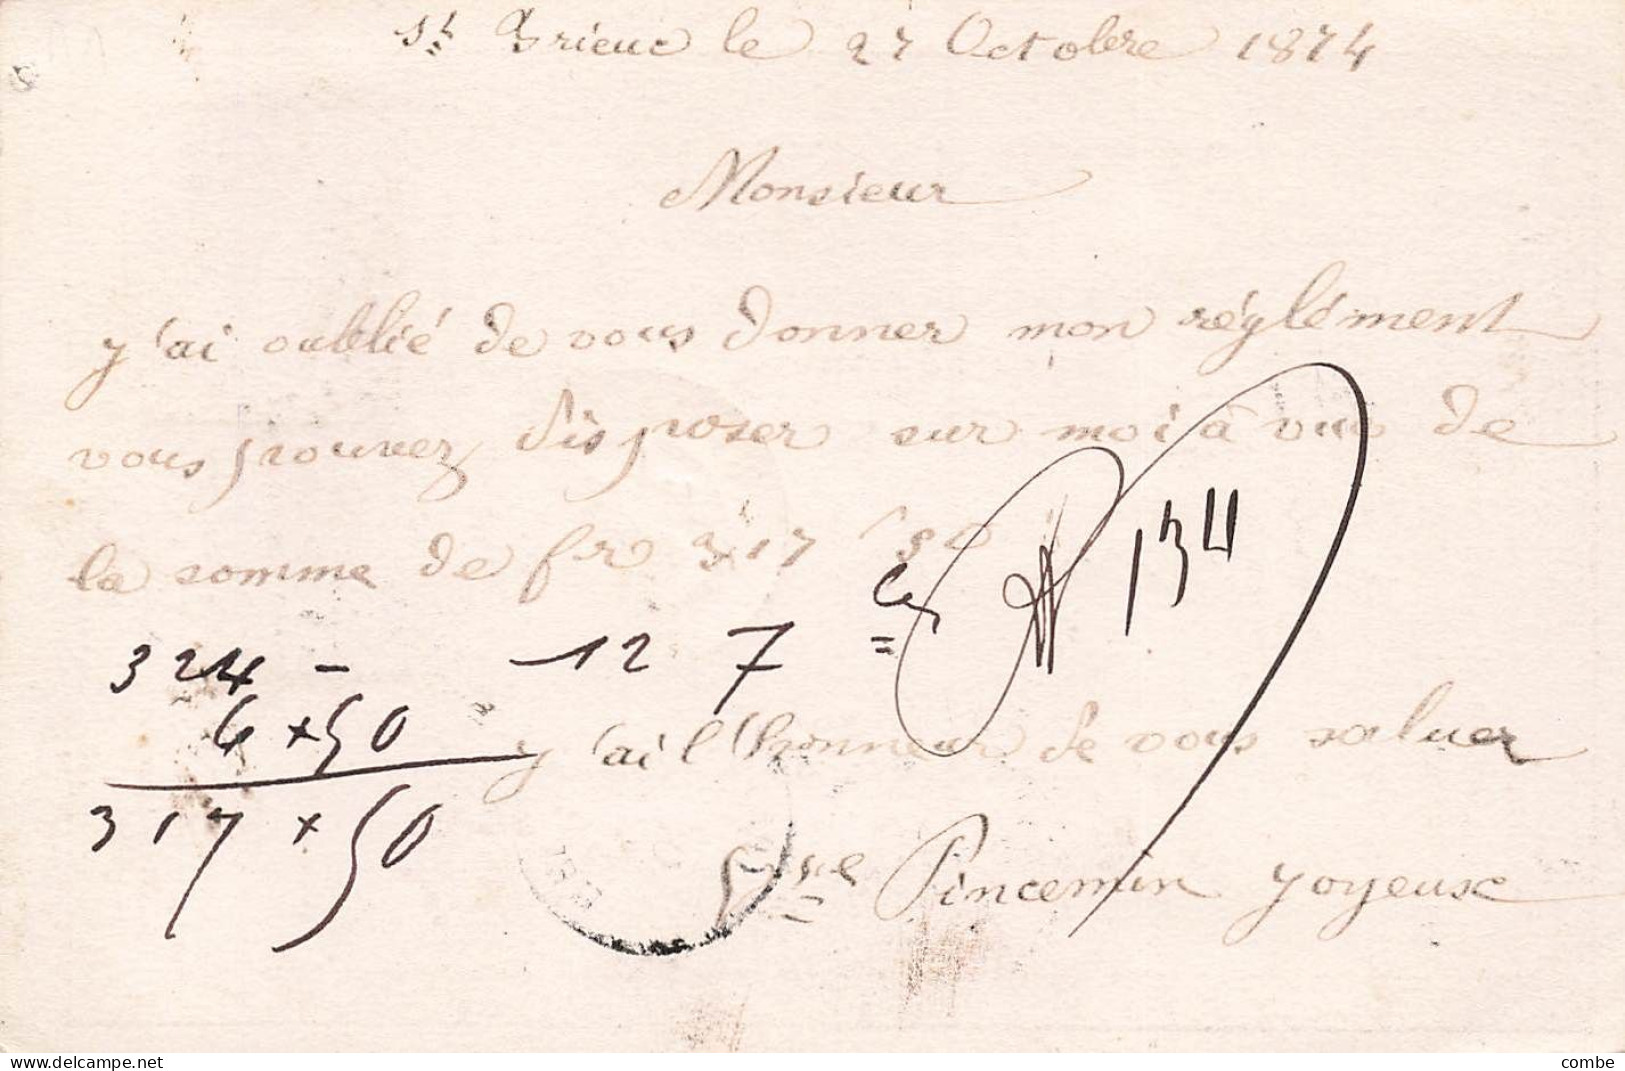 St Brieuc le 27 Octobre 1874
Monsieur
j'ai oublié de vous donner mon réglément
vous pouvez disposer sur moi à vue de
la somme de fr 317 50
134
324 - 12 7
6 x 50
j'ai l'honneur de vous saluer
317 x 50
Pincemin Joyeuse
https://www.delcampe.net
combe